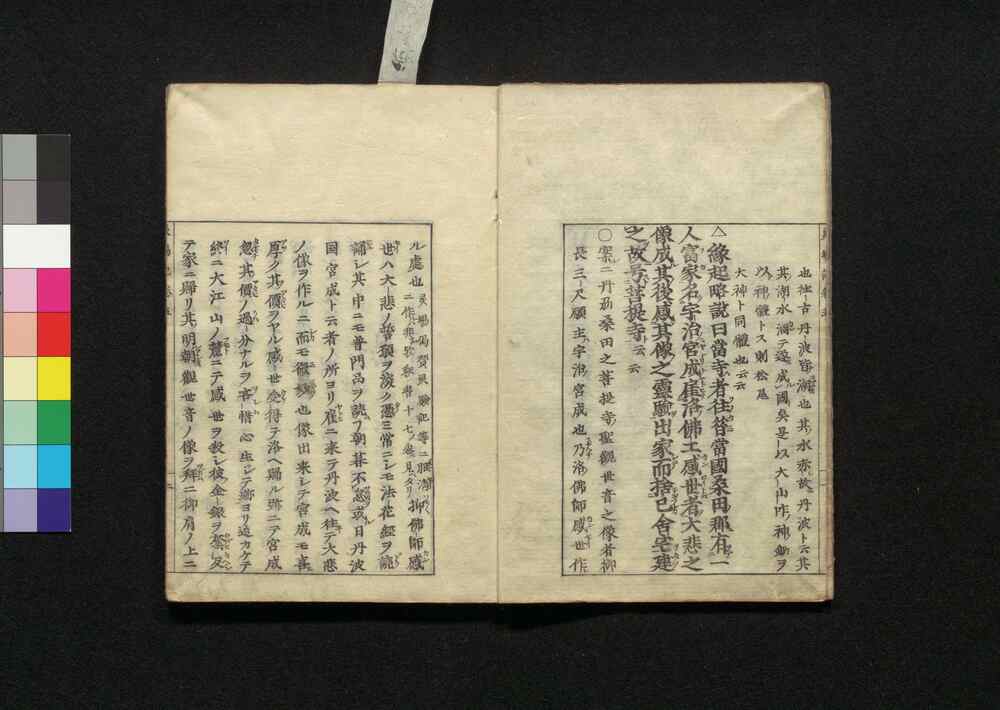 也往古丹波皆湖也其水赤故丹波ト云其
其湖水涸テ遂成國矣是以大山咋神勧ヲ
以神體トス則松尾
大神ト同體也云云
△緣起略說曰當寺者往昔當國桑田郡有一
人富家名宇治宮成雇洛佛工感世者大悲之
像成其後感其像之靈驗出家而捨已舍宅建
之故号菩提寺云云
○案ニ丹州桑田之菩提寺聖觀世音之像者御
長三尺願主宇治宮成也乃洛佛師感世作
ル處也
抑佛師感
世ハ大悲ノ誓願ヲ深ク憑ミ常ニシモ法花經ヲ讀
誦シ其中ニモ普門品ヲ読フ朝暮不怠或日丹波
国宮成ト云者ノ所ヨリ雇ニ来テ丹波ヘ往テ大悲
ノ像ヲ作ルニ而モ微妙也像出来シテ宮成モ喜
厚ク其價ヲヤル感世受得テ洛ヘ歸ル跡ニテ宮成
忽其價ノ過分ナルヲ吝惜心生シテ跡ヨリ追カケテ
終ニ大江山ノ麓ニテ感世ヲ殺シ彼金銀ヲ奪反
テ家ニ歸リ其明朝觀世音ノ像ヲ拜ニ御肩ノ上ニ